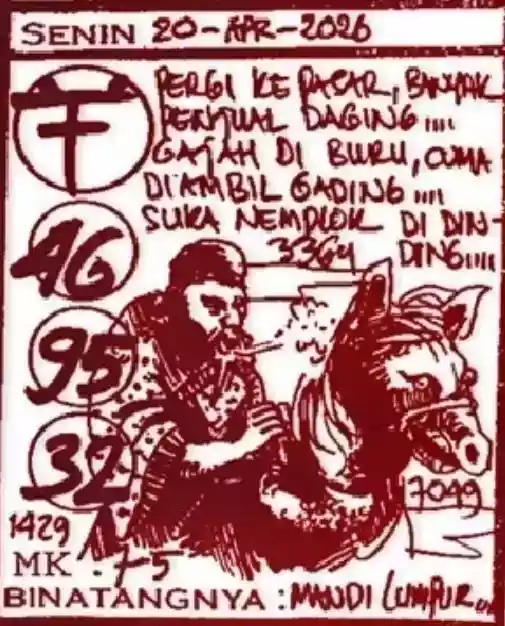 SENIN 20-APR-2026
PERGI KE PASAR, BANYAK
PENJUAL DAGING....
GAJAH DI BURU, CUMA
DIAMBIL GADING....
SUKA NEMPLOK DI DIN-
DING....
7
46
95
32
7049
1429
MK : 75
BINATANGNYA : MANDI LUMPUR...